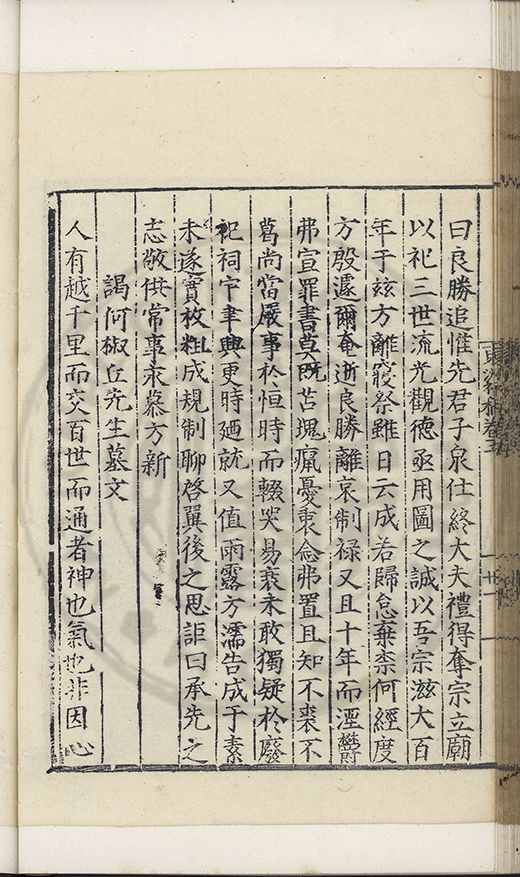 曰良勝追惟先君子泉仕終大夫禮得奪宗立廟
以祀三世流光觀德亟用圖之誠以吾宗滋大百
年于兹方離寢祭雖日云成若歸怠棄柰何經度
方殷遽爾奄逝良勝離哀制禄又且十年而湮欝
弗宣罪書莫既苫塊瘋憂衷念弗置且知不裘不
葛尚當嚴事於恒時而輟哭易衰未敢獨疑於廢
祀祠宇聿興更時廼就又值雨露方濡告成于素
未遂實放粗成規制聊啓翼後之思詎曰承先之
志敬供常事永慕方新
謁何椒丘先生墓文
人有越千里而交百世而通者神也氣也非因心